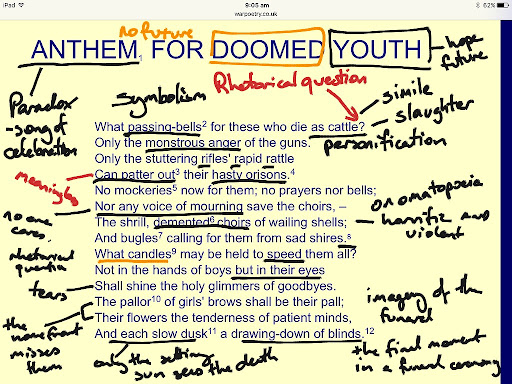 iPad
9:05 am
62%
warpoetry.co.uk
no future
ANTHEM1 FOR DOOMED YOUTH
hope
future
Rhetorical question
Paradox
-song of
celebration
symbolism
simile
slaughter
personification
What passing-bells2 for these who die as cattle?
Only the monstrous anger of the guns.
Only the stuttering rifles' rapid rattle
Can patter out3 their hasty orisons.4
No mockeries5 now for them; no prayers nor bells;
Nor any voice of mourning save the choirs, –
The shrill, demented6 choirs of wailing shells;
And bugles7 calling for them from sad shires.8
What candles9 may be held to speed them all?
Not in the hands of boys but in their eyes
Shall shine the holy glimmers of goodbyes.
The pallor10 of girls' brows shall be their pall;
Their flowers the tenderness of patient minds,
And each slow dusk11 a drawing-down of blinds.12
meaningless
no one
cares.
rhetorical
question
tears
the
homefront
misses
them
onomatopoeia
- horrific and
violent
imagery of the
funeral
the final moment
in a funeral ceremony
only the setting
sun sees the death